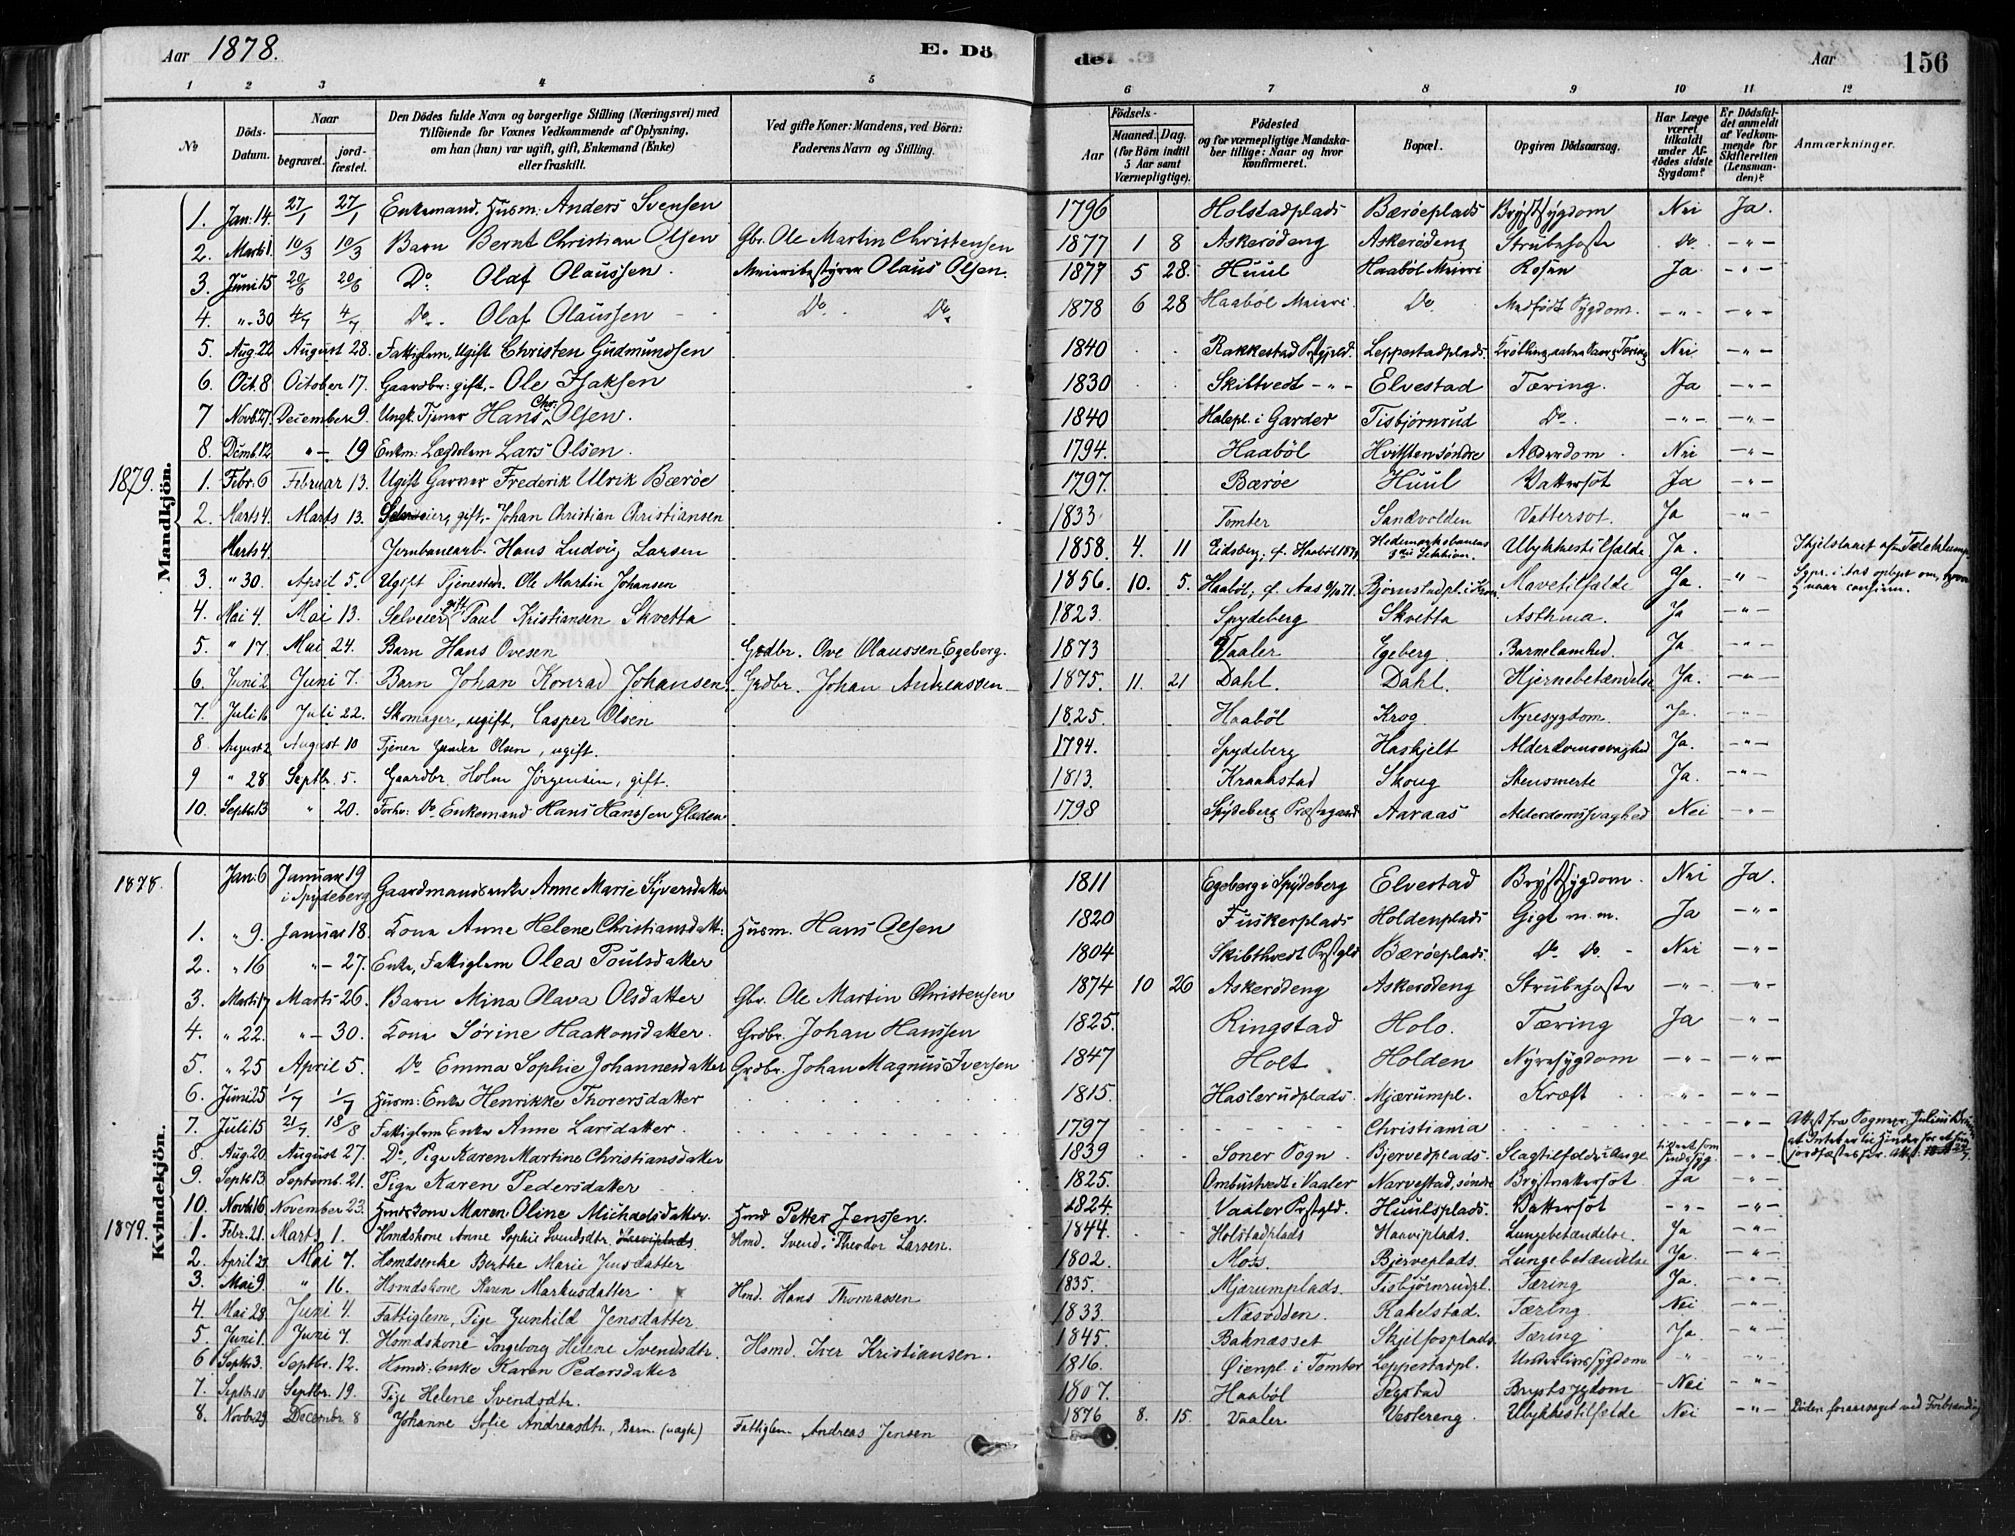 Aar 1878. E. Dö de. Aar 156
1 2 3 4 5 6 7 8 9 10 11 12
No
Döds-Datum.
Naar
begravet.
jord-fæstet.
Den Dödes fulde Navn og borgerlige Stilling (Næringsvei) med
Tilföiende for Voxnes Vedkommende af Oplysning,
om han (hun) var ugift, gift, Enkemand (Enke)
eller fraskilt.
Ved gifte Koner: Mandens, ved Börn:
Faderens Navn og Stilling.
Födsels-
Aar
Maaned. Dag.
(for Börn indtil
5 Aar samt
Værnepligtige).
Födested
og for værnepligtige Mandska-
ber tillige: Naar og hvor
konfirmeret.
Bopæl.
Opgiven Dödsaarsag.
Har Læge
været
tilkaldt
under Af-
dödes sidste
Sygdom?
Er Dödsfal-
det anmeldt
af Vedkom-
mende for
Skifteretten
(Lensman-
den)?
Anmærkninger.
Mandkjön.
1. Jan: 14. 27/1 27/1 Enkemand. Husm: Anders Svensen 1796 Holstadplads Bæröeplads Brÿstsÿgdom Nei Ja.
2. Marts 1. 10/3 10/3 Barn Bernt Christian Olsen Gbr. Ole Martin Christensen 1877 1 8 Askerödeng Askerödeng Strubehoste Do. -"-
3. Juni 15 20/6 20/6 Do. Olaf Olaussen. Meieribestÿrer Olaus Olsen. 1877 5 28. Huul Haaböl Meieri Rosen Ja -"-
4. "-30 4/7 4/7 Do.. Olaf Olaussen Do. Do. 1878 6 28 Haaböl Meieri. Do Medfödt Sygdom. -"- -"-
5. Aug. 22 August 28. Fattiglem, ugift Christen Gudmundsen 1840 Rakkestad Prstgjeld. Leppestadplads. Nei -"-
6. Oct. 8 October 17. Gaardbr: gift,- Ole Isaksen 1830 Skibtvedt -"- Elvestad Tæring. Ja -"-
7 Novb. 27. December 9. Ungk. Tjener Hans Chr. Olsen. 1840 i Garder Tisbjörnrud Do. -"- -"-
8. Decmb. 12. "- 19 Enkm: Lægdslem Lars Olsen. 1794. Haaböl Hvitsten söndre Alderdom Nei -"-
1879. 1. Febr. 6 Februar 13. Ugift Garver Frederik Ulrik Bæröe 1797. Bæröe Huul Vattersot Ja -"-
2. Marts 4. Marts 13. Selveier, gift,- Johan Christian Christiansen 1833 Tomter Sandvolden Vattersot. Ja -"-
Marts 4. Jernbanearb. Hans Ludvig Larsen 1858. 4. 11 Eidsberg; cf. Haaböl 1873 Hedemarksbanens 3die Sektion. Ulykkestilfælde Ja. Ihjelslaaet af en Teleklump
3. " 30 April 5. Ugift Tjenestdr. Ole Martin Johansen 1856. 10. 5. Haaböl; cf. Aas 9/10 71. Bjørnstadpl. i Kraa. Mavetilfælde Ja. -"- Sgpr. i Aas oplyst om, hvor & naar confirm.
4. Mai 4. Mai 13. Selveier gift Paul Kristiansen Skvetta 1823. Spydeberg Skvetta Asthma. Ja -"-
5. " 17. Mai 24. Barn Hans Ovesen Grdbr. Ove Olaussen Egeberg. 1873 Vaaler Egeberg. Barnelamhed. Ja -"-
6. Juni 2 Juni 7. Barn Johan Konrad Johansen. Grdbr. Johan Andreassen 1875. 11. 21 Dahl. Dahl. Hjernebetændelse Ja. -"-
7. Juli 16 Juli 22. Skomager, ugift, Casper Olsen 1825. Haaböl Krog Nyresygdom. Ja. -"-
8. August 2 August 10 Tjener Gunder Olsen, ugift. 1794. Spydeberg Haskjelt Alderdomssvaghed Ja. -"-
9 " 28 Septbr. 5. Gaardbr. Holm Jørgensen, gift. 1813. Kraakstad Skoug Stensmerte Ja. -"-
10. Septbr. 13 " 20. Forhv: Do Enkemand Hans Hanssen Glæden 1798 Spÿdeberg Præstegaard Aaraas Alderdomssvaghed Nei -"-
1878.
Kvindekjön.
Jan: 6 Januar 19 i Spÿdeberg Gaardmandsenke Anne Marie Syversdatter 1811 Egeberg i Spÿdeberg Elvestad Brÿstsÿgdom Nei Ja.
1. " 9. Januar 18. Kone Anne Helene Christiansdatt: Husm. Hans Olsen 1820 Fuskerplads Holdenplads Gigt m. m. Ja -"-
2. " 16 "- 27. Enke, Fattiglem Olea Poulsdatter 1804 Skibthvedt Prstgld Bæröeplads. Do. Do. Nei -"-
3. Marts 17 Marts 26. Barn Mina Olava Olsdatter Gbr. Ole Martin Christensen 1874 10 26 Askerödeng Askerödeng Strubehoste -"- -"-
4. " 22. "- 30. Kone Sörine Haakonsdatter. Grdbr. Johan Hanssen 1825. Ringstad Holo. Tæring Ja -"-
5. " 25 April 5. Do Emma Sophie Johannesdatter Grdbr. Johan Magnus Iversen 1847 Holt Holden Nÿresÿgdom -"- -"-
6. Juni 25 1/7 1/7 Husm: Enke Henrikke Thorersdatter 1815. Haslerudplads Mjærumpl. Kræft -"- -"-
7. Juli 15 21/7 18/8 Fattiglem Enke Anne Larsdatter. 1797 Christiania -"- Attest fra Sogneprs. Julius
8. Aug. 20 August 27. Do, Pige Karen Martine Christiansdatter 1839 Soner Sogn Bjervedplads. tilseet som sindssyg. -"-
9. Septb 13 Septemb. 21. Pige Karen Pedersdatter 1825. Ombustvedt i Vaaler Narvestad, søndre Brÿstvattersot. Ja -"-
10. Novb. 16 November 23. Hmdskone Maren Oline Michaelsdatter. Hmd Petter Jenssen. 1824. Vaaler Prstgld. Huulsplads. Vattersot -"- -"-
1879. 1. Febr. 21. Marts 1. Hmdskone Anne Sophie Svendsdtr. Hmd. Svend Theodor Larsen. 1844. Holstadplads Haaviplads. Lungebetændelse. Ja -"-
2. April 29 Mai 7. Hsmdsenke Berthe Marie Jensdatter 1802. Moss Bjerveplads. Lungebetændelse Ja. -"-
3. Mai 9. " 16. Hsmdskone Karen Markusdatter. Hmd. Hans Thomassen 1835. Mjærumplads. Tisbjørnrudpl. Tæring Ja. -"-
4. Mai 28. Juni 4. Fattiglem, Pige Gunhild Jensdatter 1833 Næsodden. Rakelstad. Tæring Nei -"-
5. Juni 1. Juni 7. Hsmdskone Ingeborg Helene Svendsdtr. Hsmd. Iver Kristiansen. 1845. Baknæsset Skjelfosplads. Tæring Ja. -"-
6 Septbr 3. Septbr. 12. Hsmds: Enke Karen Pedersdatter 1816. Øienpl. i Tomter Leppestadpl. Underlivssygdom " -"-
7. Septbr. 10 Septbr. 19. Pige Helene Svendsdtr. 1807. Haaböl Brystsygdom Nei -"-
8. Novbr. 29 Decembr. 8 Johanne Sofie Andreasdtr., Barn (uægte) Fattiglem Andreas Jensen 1876 8. 15. Vaaler Vestereng. Ulykkestilfælde Nei -"- Döden foraarsaget ved Forbrænding